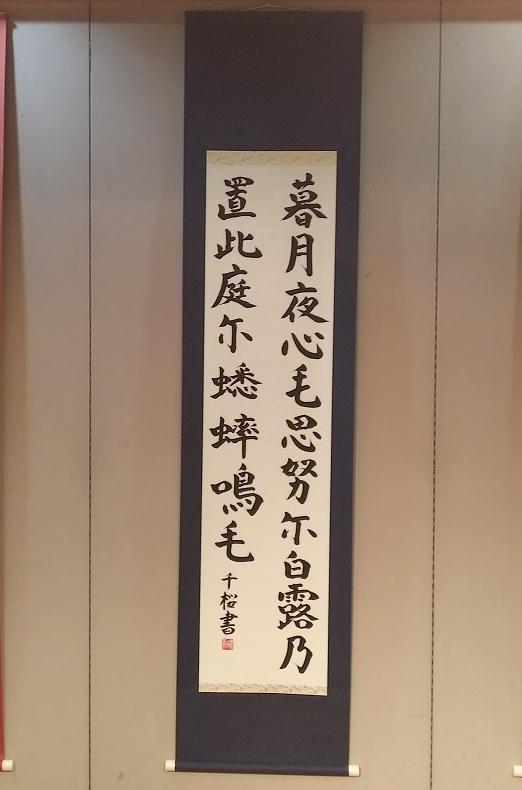 暮月夜心毛思努尓白露乃
置此庭尓蟋蟀鳴毛
千桜書